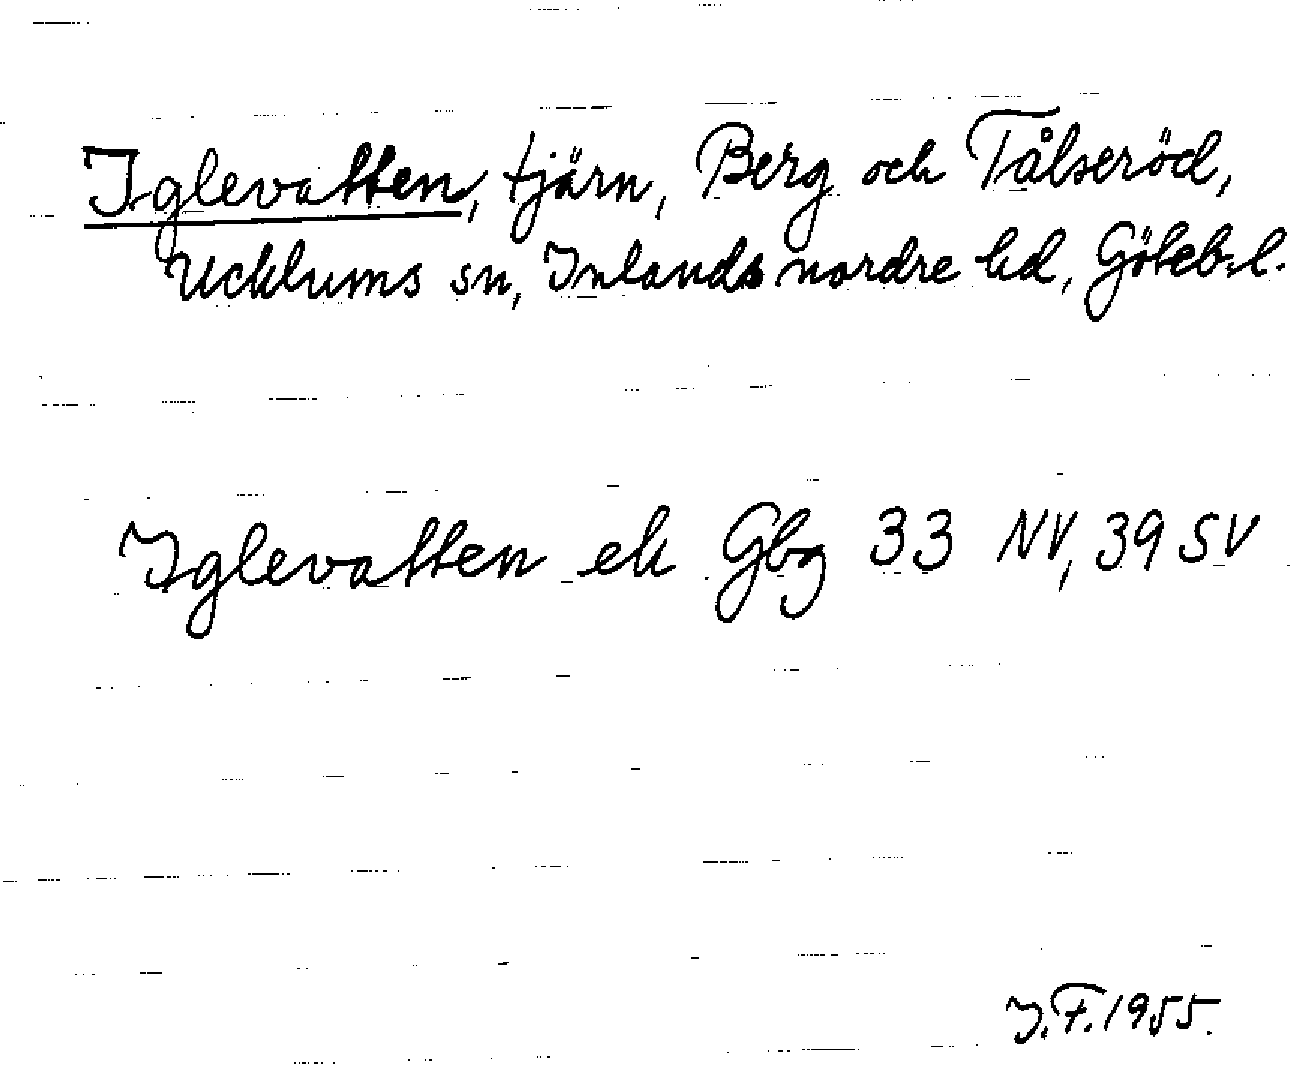 Iglevatten, tjärn, Berg och Tålseröd,
Ucklums sn, Inlands nordre hd, Göteb.l.
Iglevatten ek Gbg 33 NV, 39 SV
J.F. 1955.